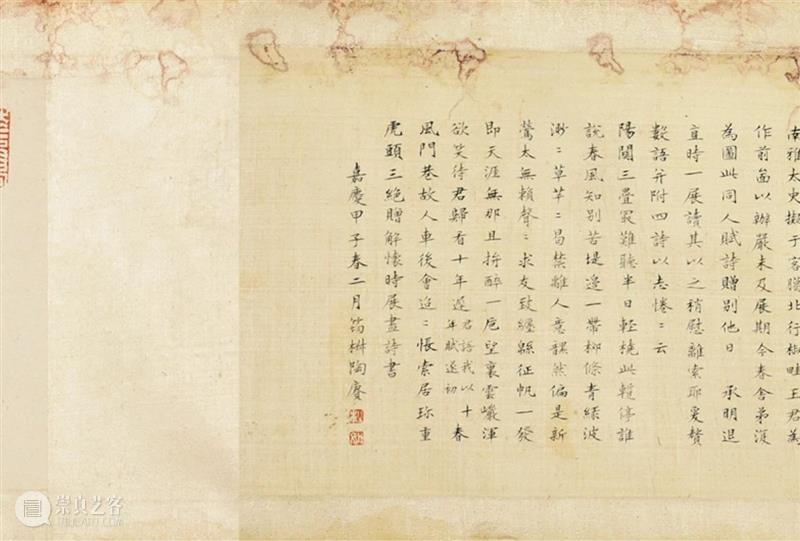 南雅太史擬于客臘北行椒畦王君為
作前啚以辦嚴未及展期今春舍弟復
為圖此同人賦詩贈別他日 承明退
直時一展讀其以之稍慰離索耶爰贅
數語并附四詩以志惓〻云
陽關三疊最難聽半日輕橈此蹔停誰
說春風知別苦堤邊一帶柳條青綠波
渺〻草芊〻曷禁離人意黯然偏是新
鶯太無賴聲〻求友致纏緜征帆一發
即天涯無那且拚醉一卮望裏雲巘渾
欲笑待君歸看十年遲君語我以十年賦遂初春
風門巷故人車後會迢〻悵索居珎重
虎頭三絕贈解懷時展畫詩書
嘉慶甲子春二月筠陶賡
崇真艺客